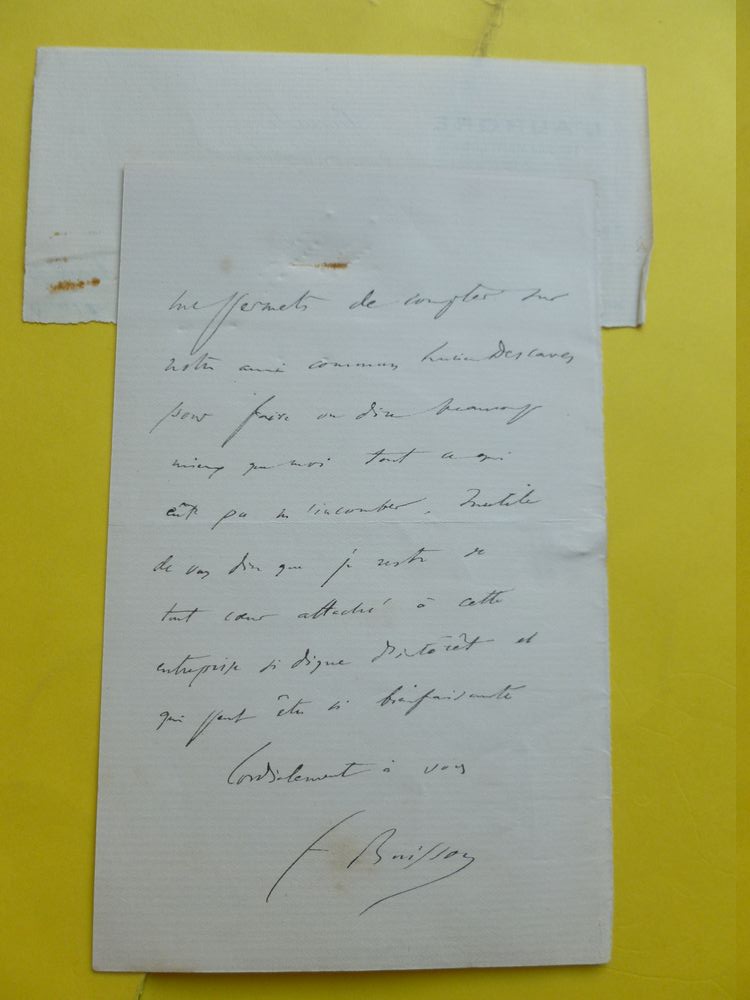 L'AURORE
me permets de compter sur
notre ami commun Lucien Descaves
pour faire ou dire beaucoup
mieux que moi tout ce qui
eût pu m'incomber. Inutile
de vous dire que je reste de
tout cœur attaché à cette
entreprise si digne d'intérêt et
qui peut être si bienfaisante
Cordialement à vous
F Buisson